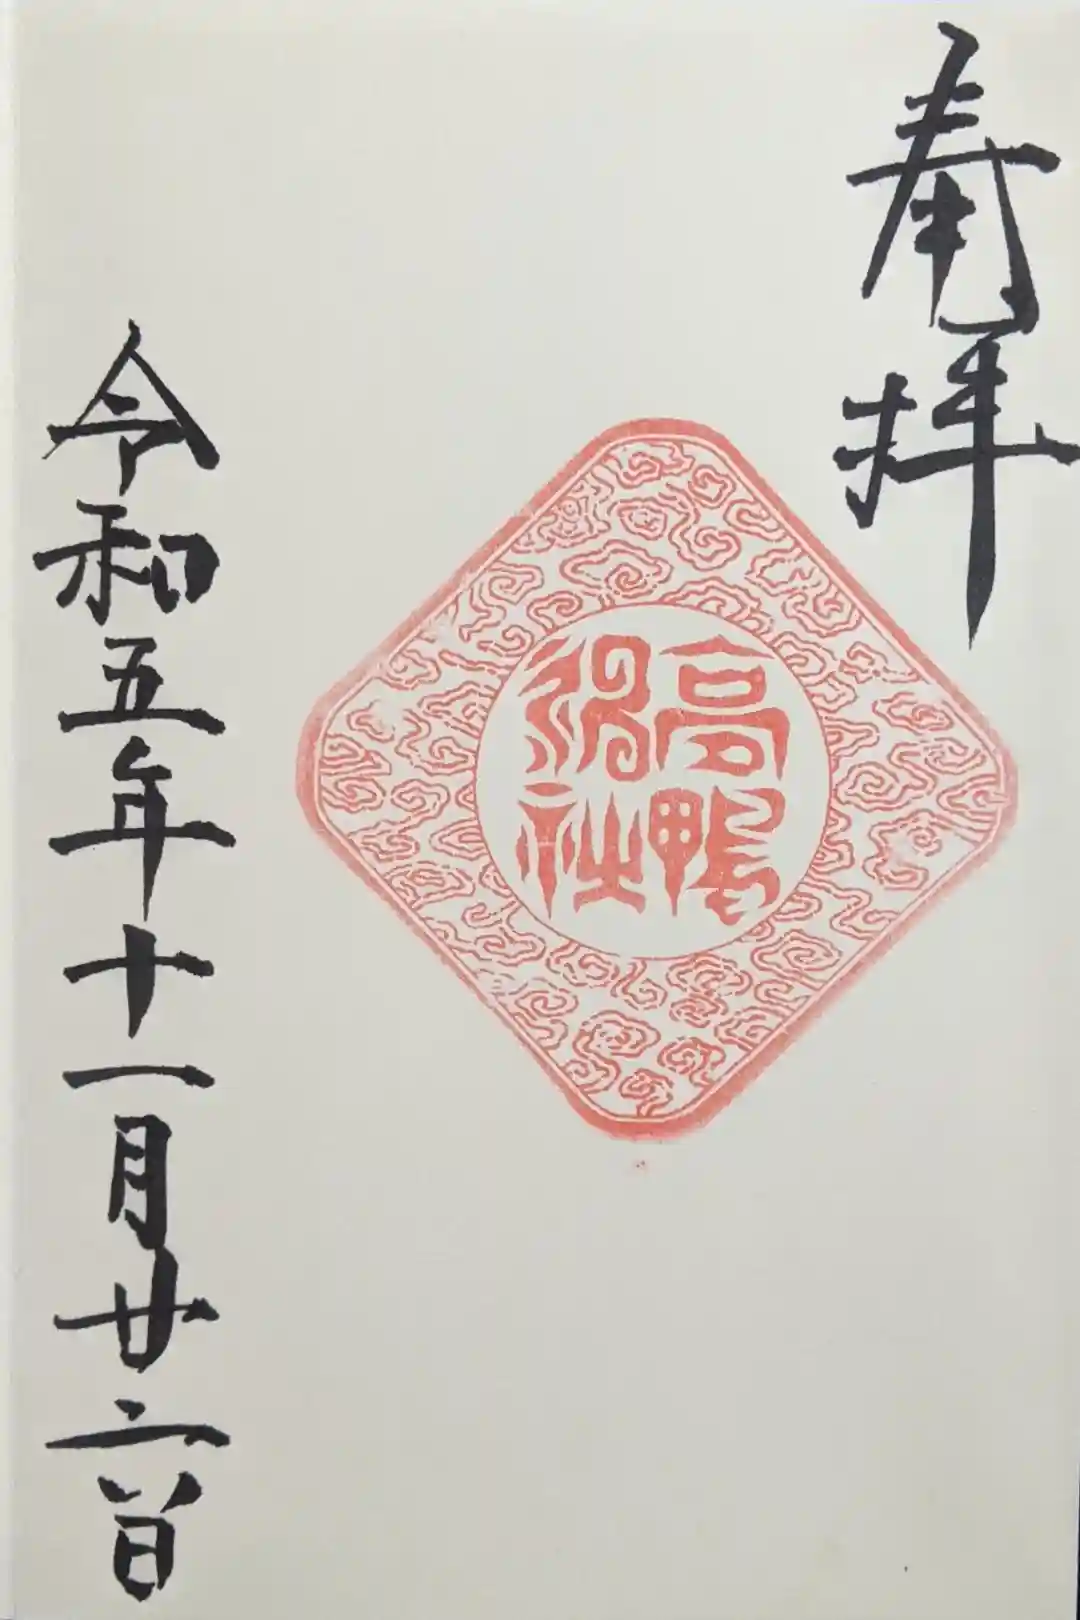 奉拝
高鴨
神社
令和五年十一月廿二日